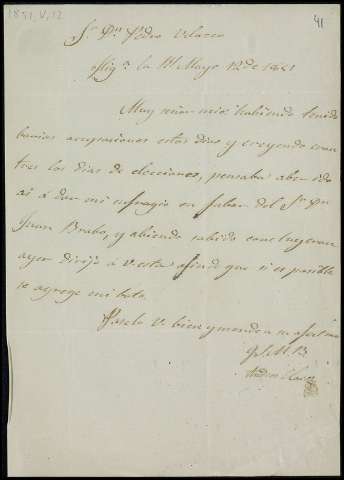 1851, V, 12
41
Sr. Dn. Pedro Velasco
Mayo 12 de 1851
Muy señor mio habiendo tenido
barias ocupaciones estos dias y creyendo eran
tres los dias de elecciones, pensaba aber ido
ai á dar mi sufragio en fabor del Sr. Dn
Juan Brabo, y abiendo sabido concluyeron
ayer dirijo á V esta afin de que si es posible
se agrege mi boto.
Paselo V. bien y mande a su afectmo
Q. S. M. B.
Andres